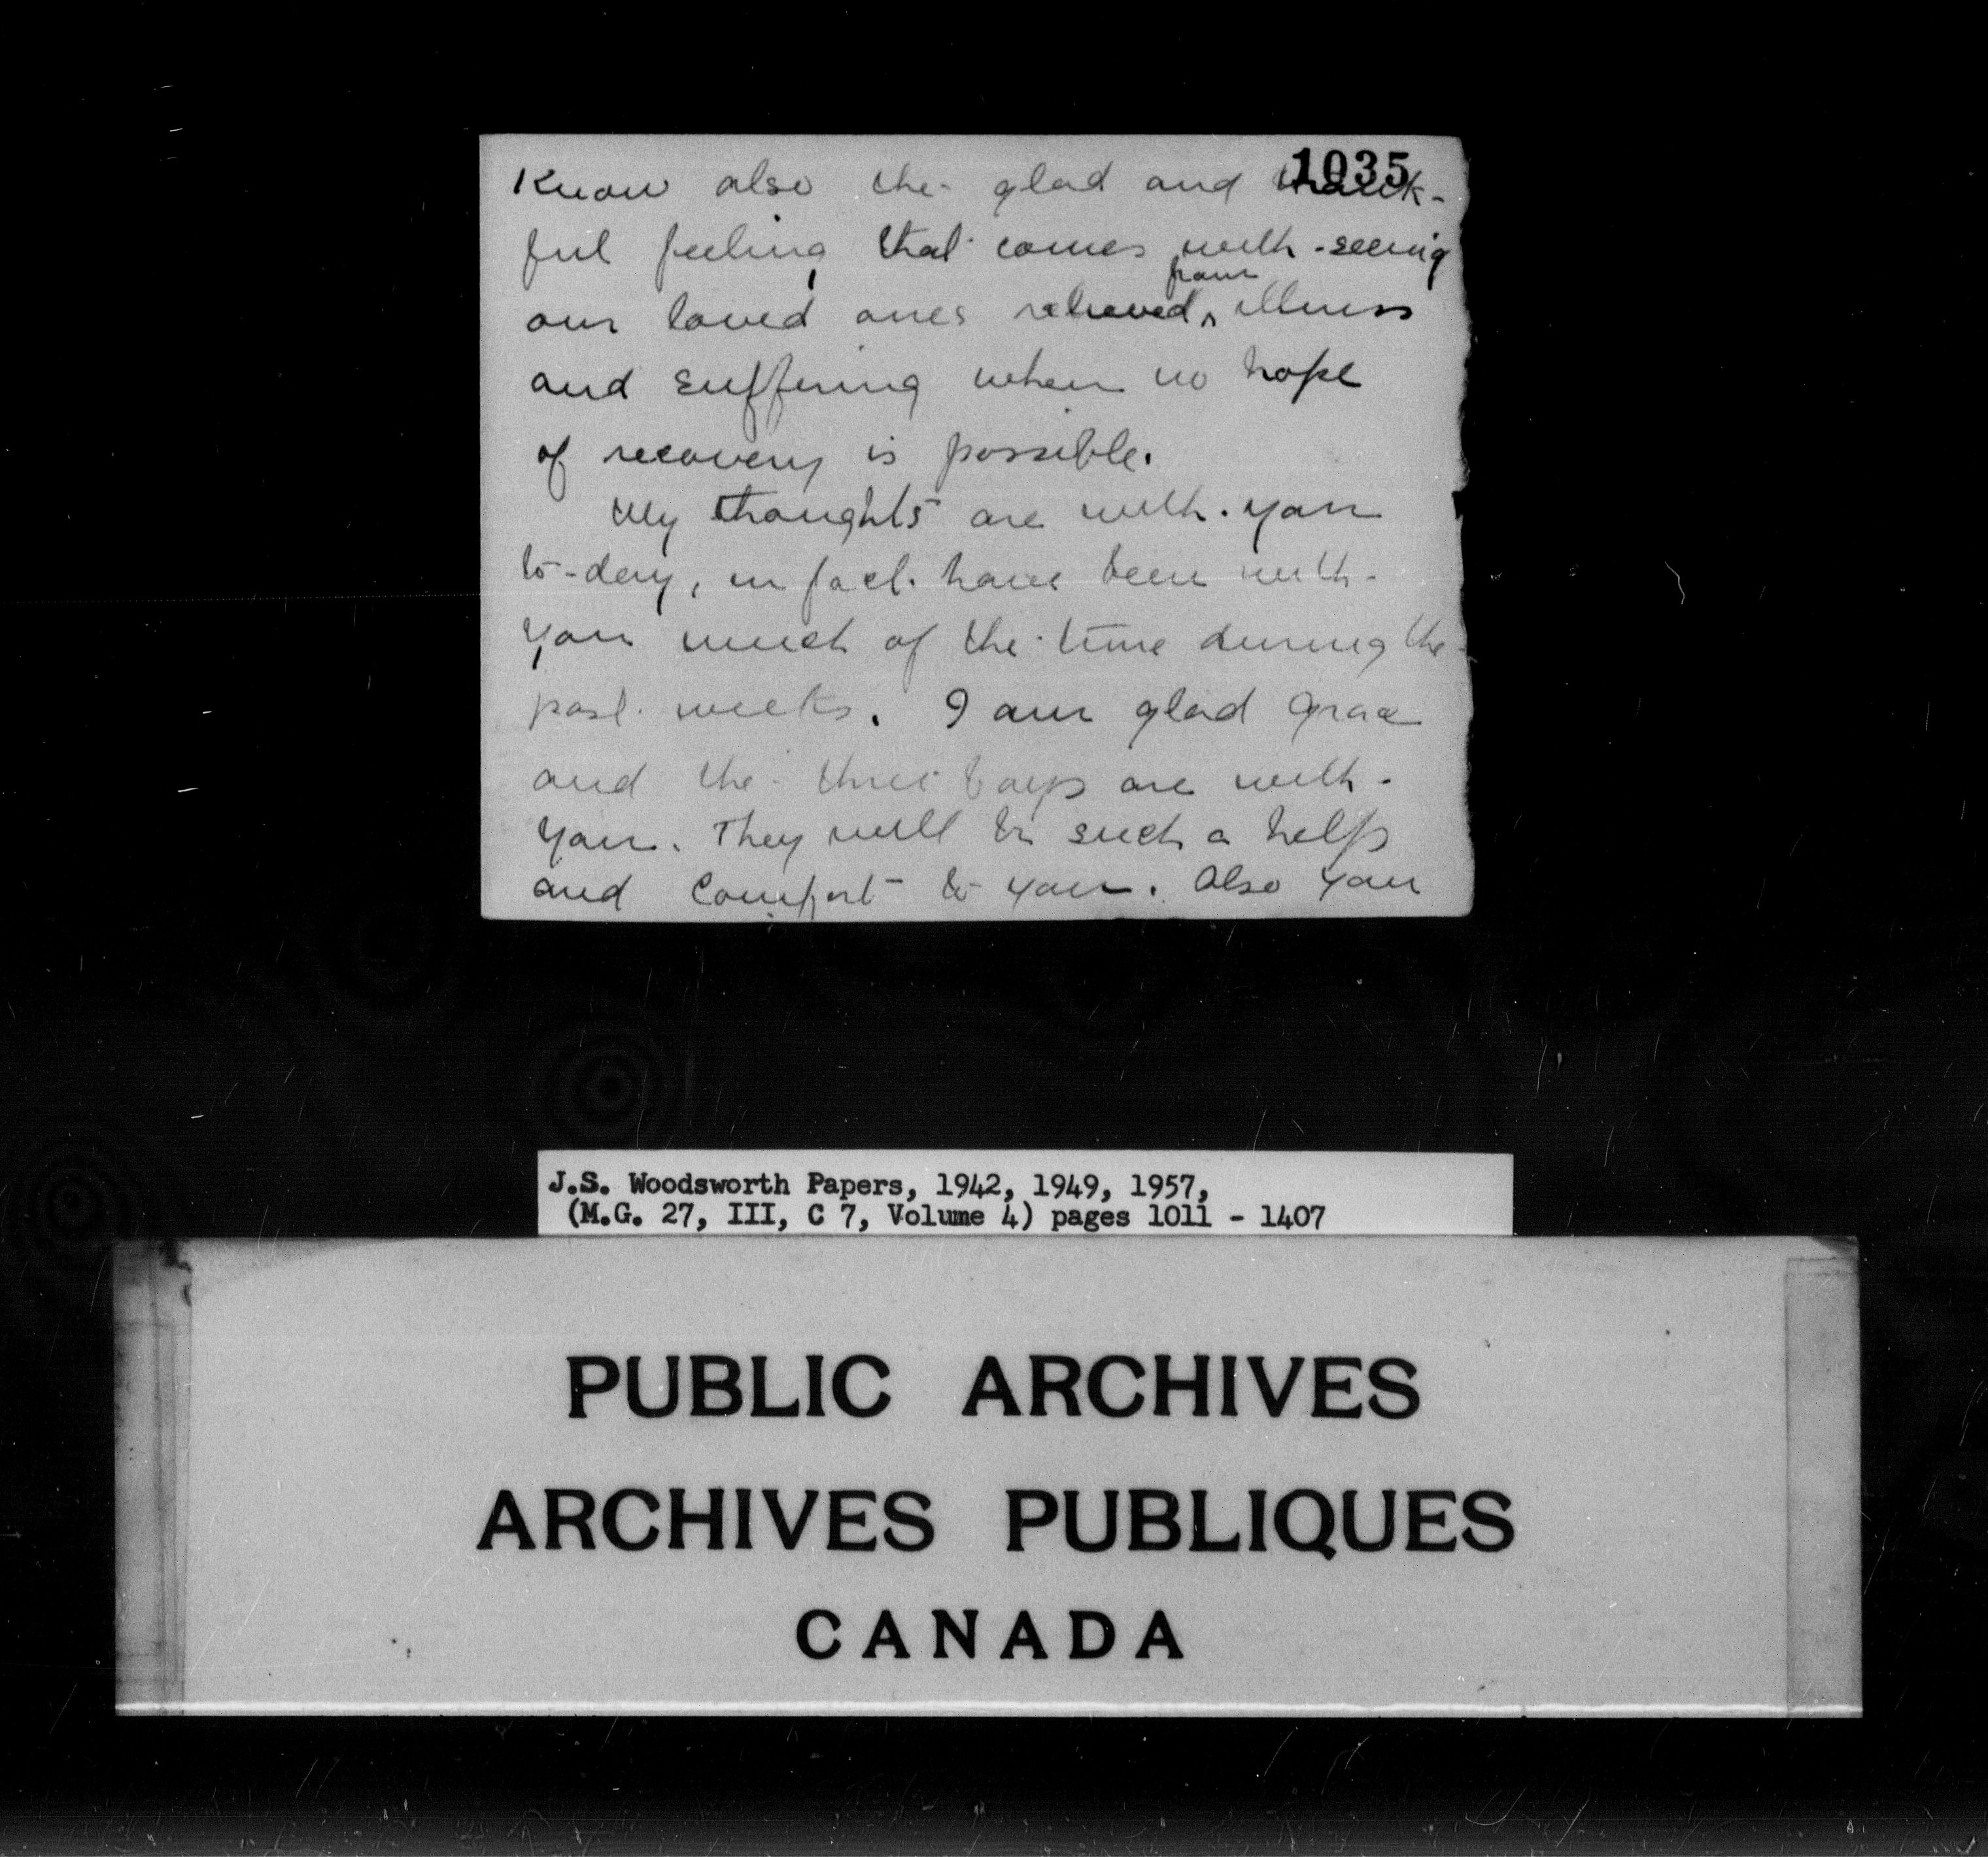 1035
Know also the glad and thank-
ful feeling that comes with seeing
our loved ones relieved from illness
and suffering when no hope
of recovery is possible.
My thoughts are with you
to-day, in fact have been with
you much of the time during the
past weeks. I am glad Grace
and the three boys are with
you. They will be such a help
and comfort to you. Also you
J.S. Woodsworth Papers, 1942, 1949, 1957,
(M.G. 27, III, C 7, Volume 4) pages 1011 - 1407
PUBLIC ARCHIVES
ARCHIVES PUBLIQUES
CANADA